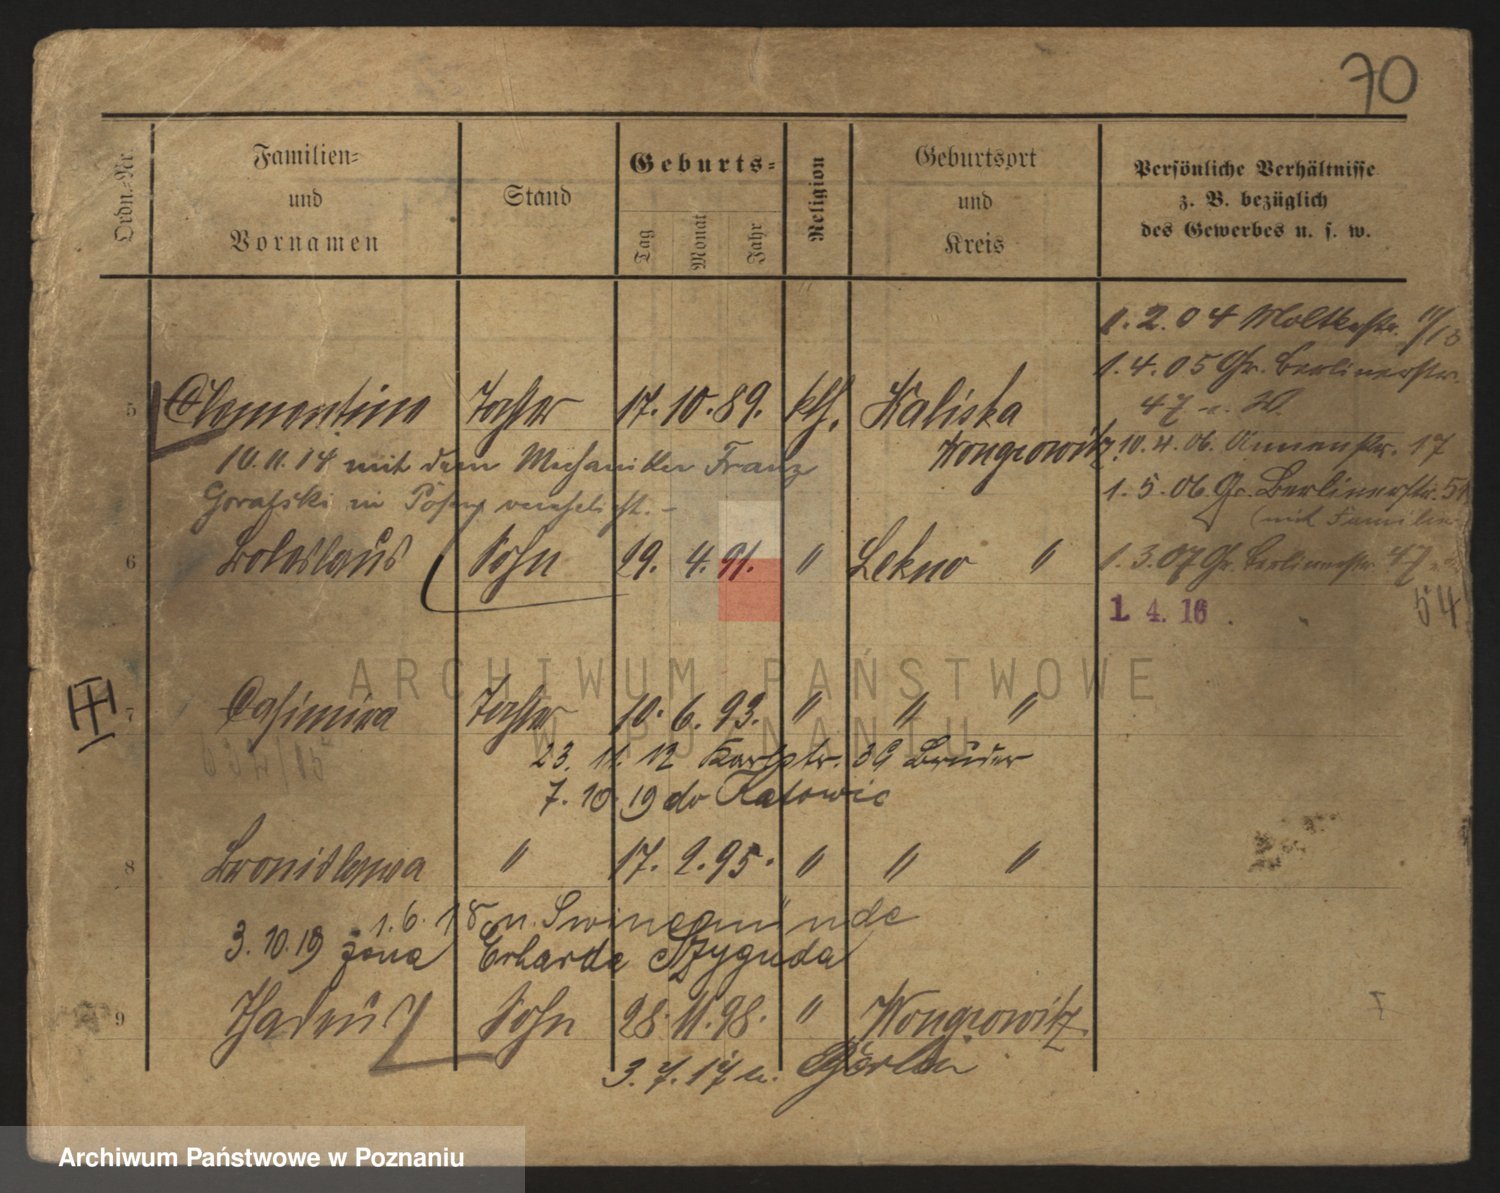 70
Ordn.-Nr.
Familien-
und
Vornamen
Stand
Geburts-
Tag
Monat
Jahr
Religion
Geburtsort
und
Kreis
Persönliche Verhältnisse
z. B. bezüglich
des Gewerbes u. s. w.
1. 2. 04 Moltkestr. 11/13
1. 4. 05 Gr. Berlinerstr.
47
5 Clementine Tochter 17. 10. 89. kth. Kaliska
Wongrowitz
10. 4. 06. Annenstr. 17
10. 11. 14 mit dem Mechaniker Franz
Goralski in Posen verehelicht. -
1. 5. 06. Gr. Berlinerstr. 51
(mit Familie
6 Boleslaus Sohn 29. 4. 91. " Lekno "
1. 3. 07 Gr. Berlinerstr. 47
1. 4. 16.
54
7 Casimira Tochter 10. 6. 93. " " "
23. 11. 12 Karlstr. 39 Bruder
7. 10 19 do Katowic
8 Bronislawa " 17. 2. 95. " " "
1. 6. 18 n. Swinemünde
3. 10. 19 żona Erharda Szyguda
9 Thadeus Sohn 28. 11. 98. " Wongrowitz
3. 7. 17 n. Berlin
ARCHIWUM PAŃSTWOWE
W POZNANIU
Archiwum Państwowe w Poznaniu